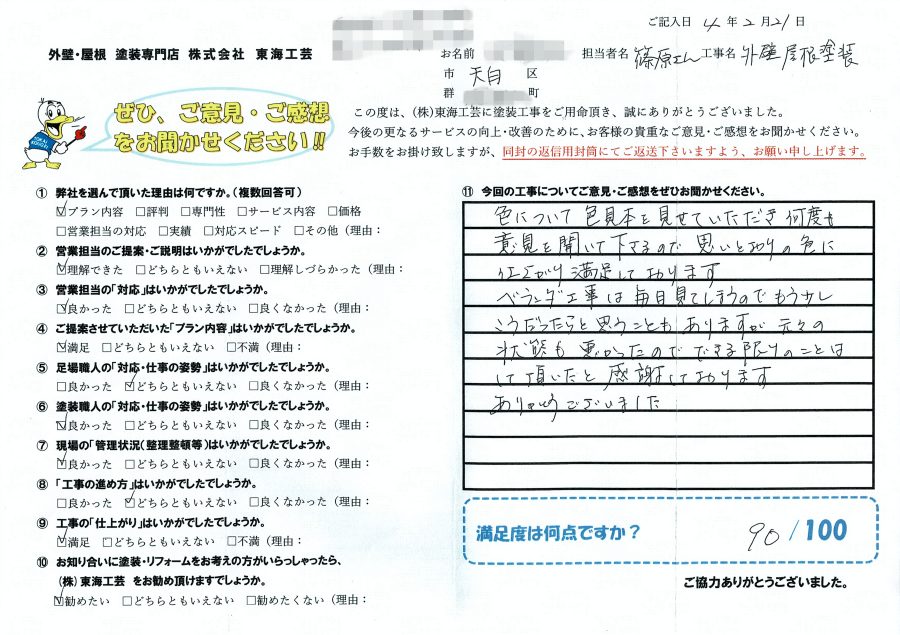 ご記入日 4年2月21日
外壁・屋根 塗装専門店 株式会社 東海工芸
お名前 担当者名 篠原さん 工事名 外壁屋根塗装
市 天白 区
群 町
ぜひ、ご意見・ご感想
をお聞かせください!!
この度は、(株)東海工芸に塗装工事をご用命頂き、誠にありがとうございました。
今後の更なるサービスの向上・改善のために、お客様の貴重なご意見・ご感想をお聞かせください。
お手数をお掛け致しますが、同封の返信用封筒にてご返送下さいますよう、お願い申し上げます。
① 弊社を選んで頂いた理由は何ですか。(複数回答可)
☑プラン内容 □評判 □専門性 □サービス内容 □価格
□営業担当の対応 □実績 □対応スピード □その他(理由:
② 営業担当のご提案・ご説明はいかがでしたでしょうか。
☑理解できた □どちらともいえない □理解しづらかった(理由:
③ 営業担当の「対応」はいかがでしたでしょうか。
☑良かった □どちらともいえない □良くなかった(理由:
④ ご提案させていただいた「プラン内容」はいかがでしたでしょうか。
☑満足 □どちらともいえない □不満(理由:
⑤ 足場職人の「対応・仕事の姿勢」はいかがでしたでしょうか。
□良かった ☑どちらともいえない □良くなかった(理由:
⑥ 塗装職人の「対応・仕事の姿勢」はいかがでしたでしょうか。
☑良かった □どちらともいえない □良くなかった(理由:
⑦ 現場の「管理状況(整理整頓等)はいかがでしたでしょうか。
☑良かった □どちらともいえない □良くなかった(理由:
⑧ 「工事の進め方」はいかがでしたでしょうか。
□良かった ☑どちらともいえない □良くなかった(理由:
⑨ 工事の「仕上がり」はいかがでしたでしょうか。
☑満足 □どちらともいえない □不満(理由:
⑩ お知り合いに塗装・リフォームをお考えの方がいらっしゃったら、
(株)東海工芸 をお勧め頂けますでしょうか。
☑勧めたい □どちらともいえない □勧めたくない(理由:
⑪ 今回の工事についてご意見・ご感想をぜひお聞かせください。
色について 色見本を見せていただき 何度も
意見を聞いて下さるので 思いどおりの色に
仕上がり 満足しております
ベランダ工事は毎日見てしまうのでもう少し
こうだったらと思うこともありますが 元々の
状態も悪かったので できる限りのことは
して頂いたと感謝しております
ありがとうございました
満足度は何点ですか? 90/100
ご協力ありがとうございました。